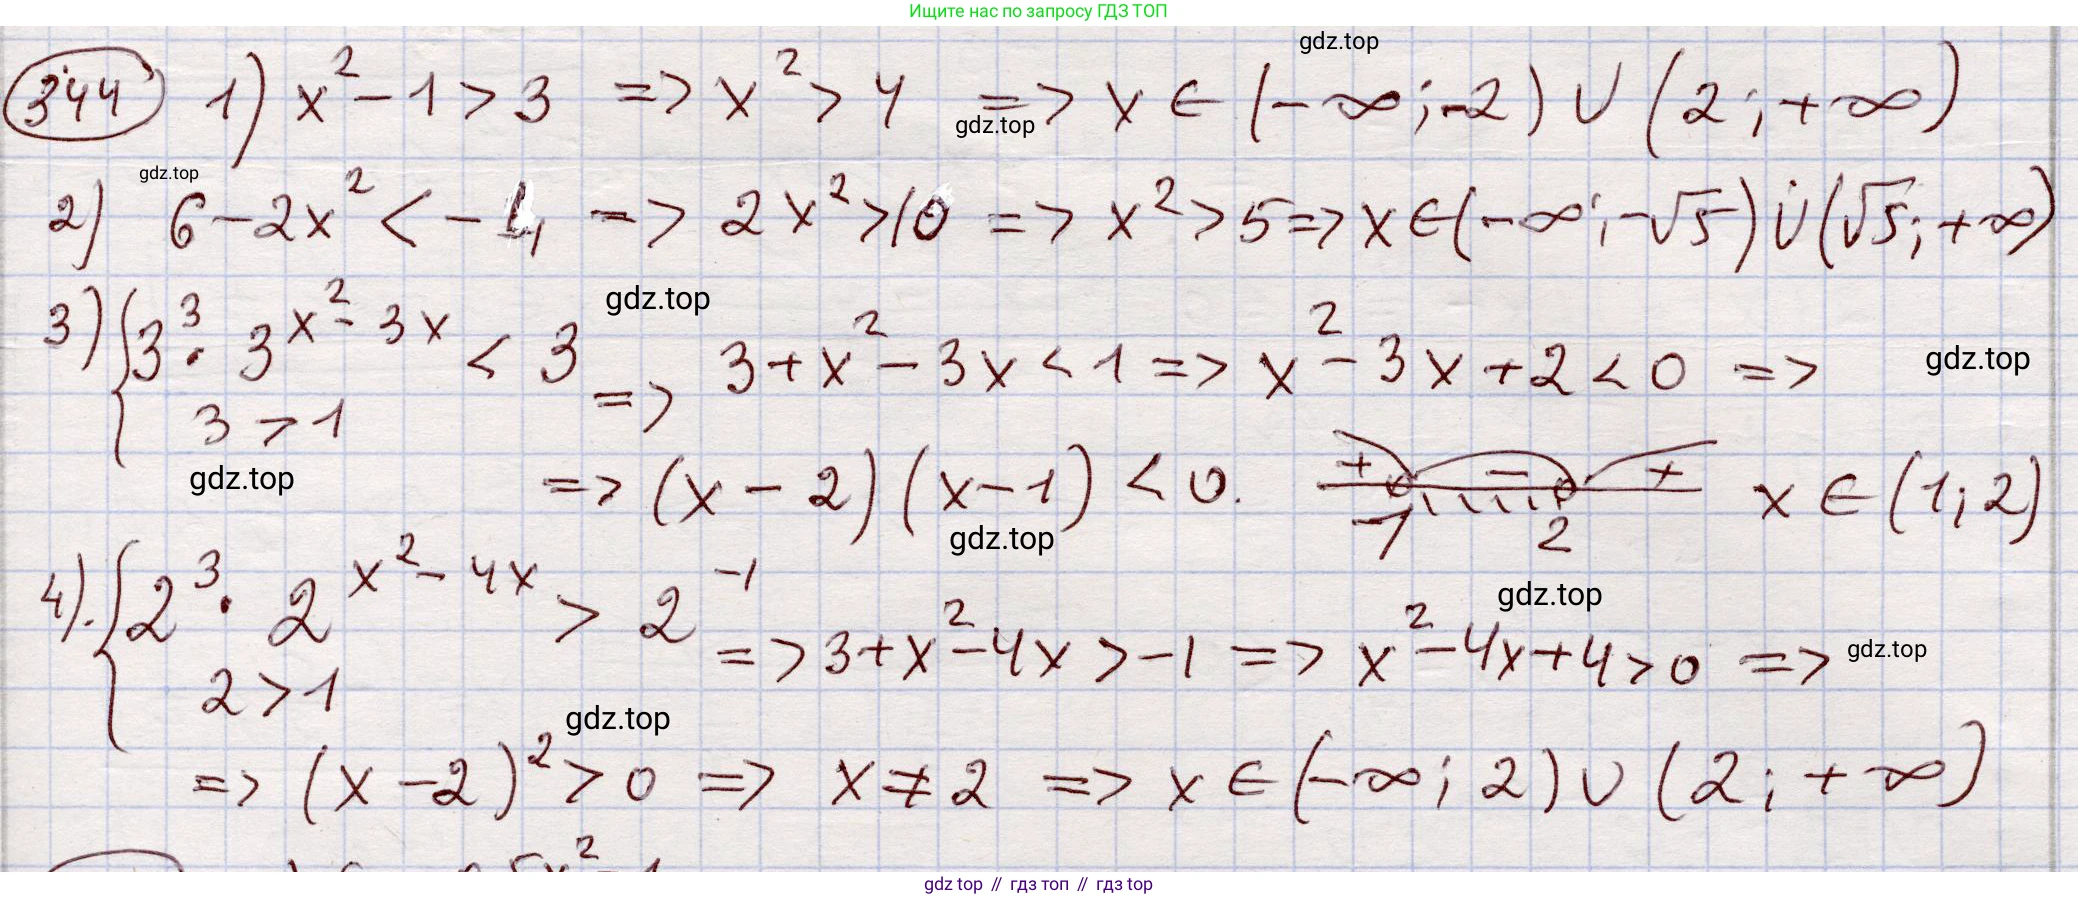 Ищите нас по запросу ГДЗ ТОП
gdz.top
344 1) x² - 1 > 3 => x² > 4 => x ∈ (-∞; -2) ∪ (2; +∞)
gdz.top
gdz.top
2) 6 - 2x² < -4, => 2x² > 10 => x² > 5 => x ∈ (-∞; -√5) ∪ (√5; +∞)
gdz.top
3) { 3³ · 3^(x² - 3x) < 3 => 3 + x² - 3x < 1 => x² - 3x + 2 < 0 =>
gdz.top
3 > 1
gdz.top
=> (x - 2)(x - 1) < 0. + - + 1 2 x ∈ (1; 2)
gdz.top
4). { 2³ · 2^(x² - 4x) > 2^(-1) => 3 + x² - 4x > -1 => x² - 4x + 4 > 0 =>
gdz.top
gdz.top
2 > 1
gdz.top
=> (x - 2)² > 0 => x ≠ 2 => x ∈ (-∞; 2) ∪ (2; +∞)
gdz top // гдз топ // гдз top